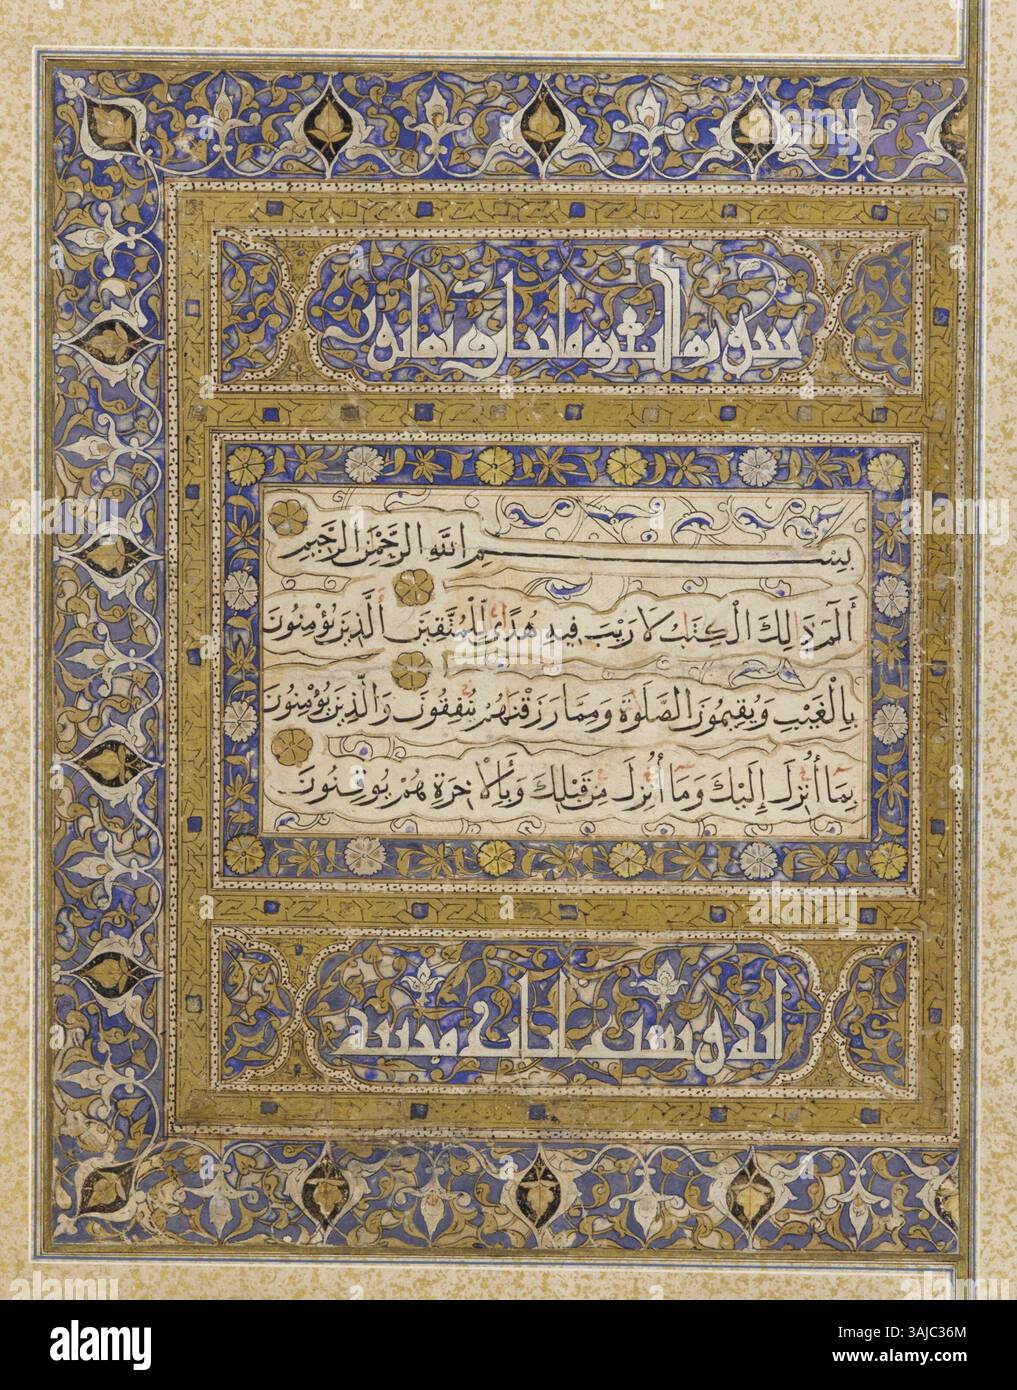 سورة البقرة مايتان
بِسْمِ اللهِ الرَّحْمٰنِ الرَّحِيمِ
الٓمٓ ذَالِكَ الْكِتَابُ لَا رَيْبَ فِيهِ هُدًى لِلْمُتَّقِينَ الَّذِينَ يُؤْمِنُونَ
بِالْغَيْبِ وَيُقِيمُونَ الصَّلٰوةَ وَمِمَّا رَزَقْنَاهُمْ يُنْفِقُونَ وَالَّذِينَ يُؤْمِنُونَ
بِمَا أُنْزِلَ إِلَيْكَ وَمَا أُنْزِلَ مِنْ قَبْلِكَ وَبِالْاٰخِرَةِ هُمْ يُوقِنُونَ
alamy
Image ID: 3AJC36M
www.alamy.com